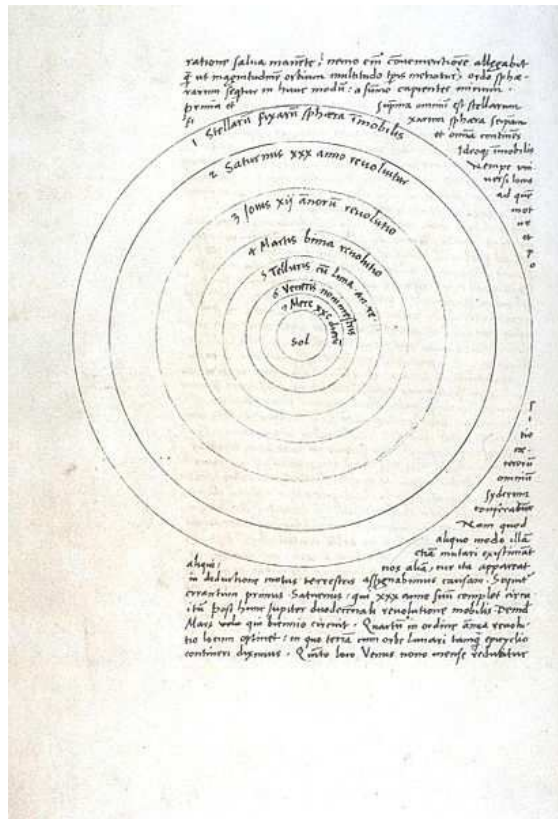 ratione salua manẽte; nemo em̃ conuenientiorẽ allegabit
q̃ ut magnitudinẽ orbium multitudo tp̃is metiatur; ordo sphæ-
rarum sequitur in hunc modũ: a sũmo capientes initium.
prima et suprema omniũ est stellarum
fixarum sphæra seipsam
et omnia continẽs
Ideoq̃ ĩmobilis
Nempe uni
uersi locus
ad quẽ
mot
us
et
po
1 Stellarũ fixarũ sphæra ĩmobilis
2 Saturnus xxx anno reuoluitur
3 Iouis xij annorũ reuolutio
4 Martis bima reuolutio
5 Telluris cũ luna an. re.
6 Veneris nonimestris
7 Merc xxc dierũ
Sol
si
tio
cæ-
terorũ
omniũ
syderum
conferatur
Nam quod
aliquo modo illã
etiã mutari existimãt
aliqui; nos aliã, cur ita appareat
in deductione motus terrestris assignabimus causam. Sequit̃
errantium primus Saturnus; qui xxx anno suũ complet circu-
itũ post hunc Jupiter duodecennali reuolutione mobilis Deinde
Mars uolo qui biennio circuit. Quartũ in ordine ãnua reuolu-
tio locum optinet; in quo terrã cum orbe lunari tanq̃ epicyclio
contineri diximus. Quinto loco Venus nono mense reducitur